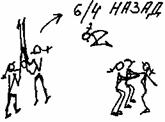 6/4 НАЗАД